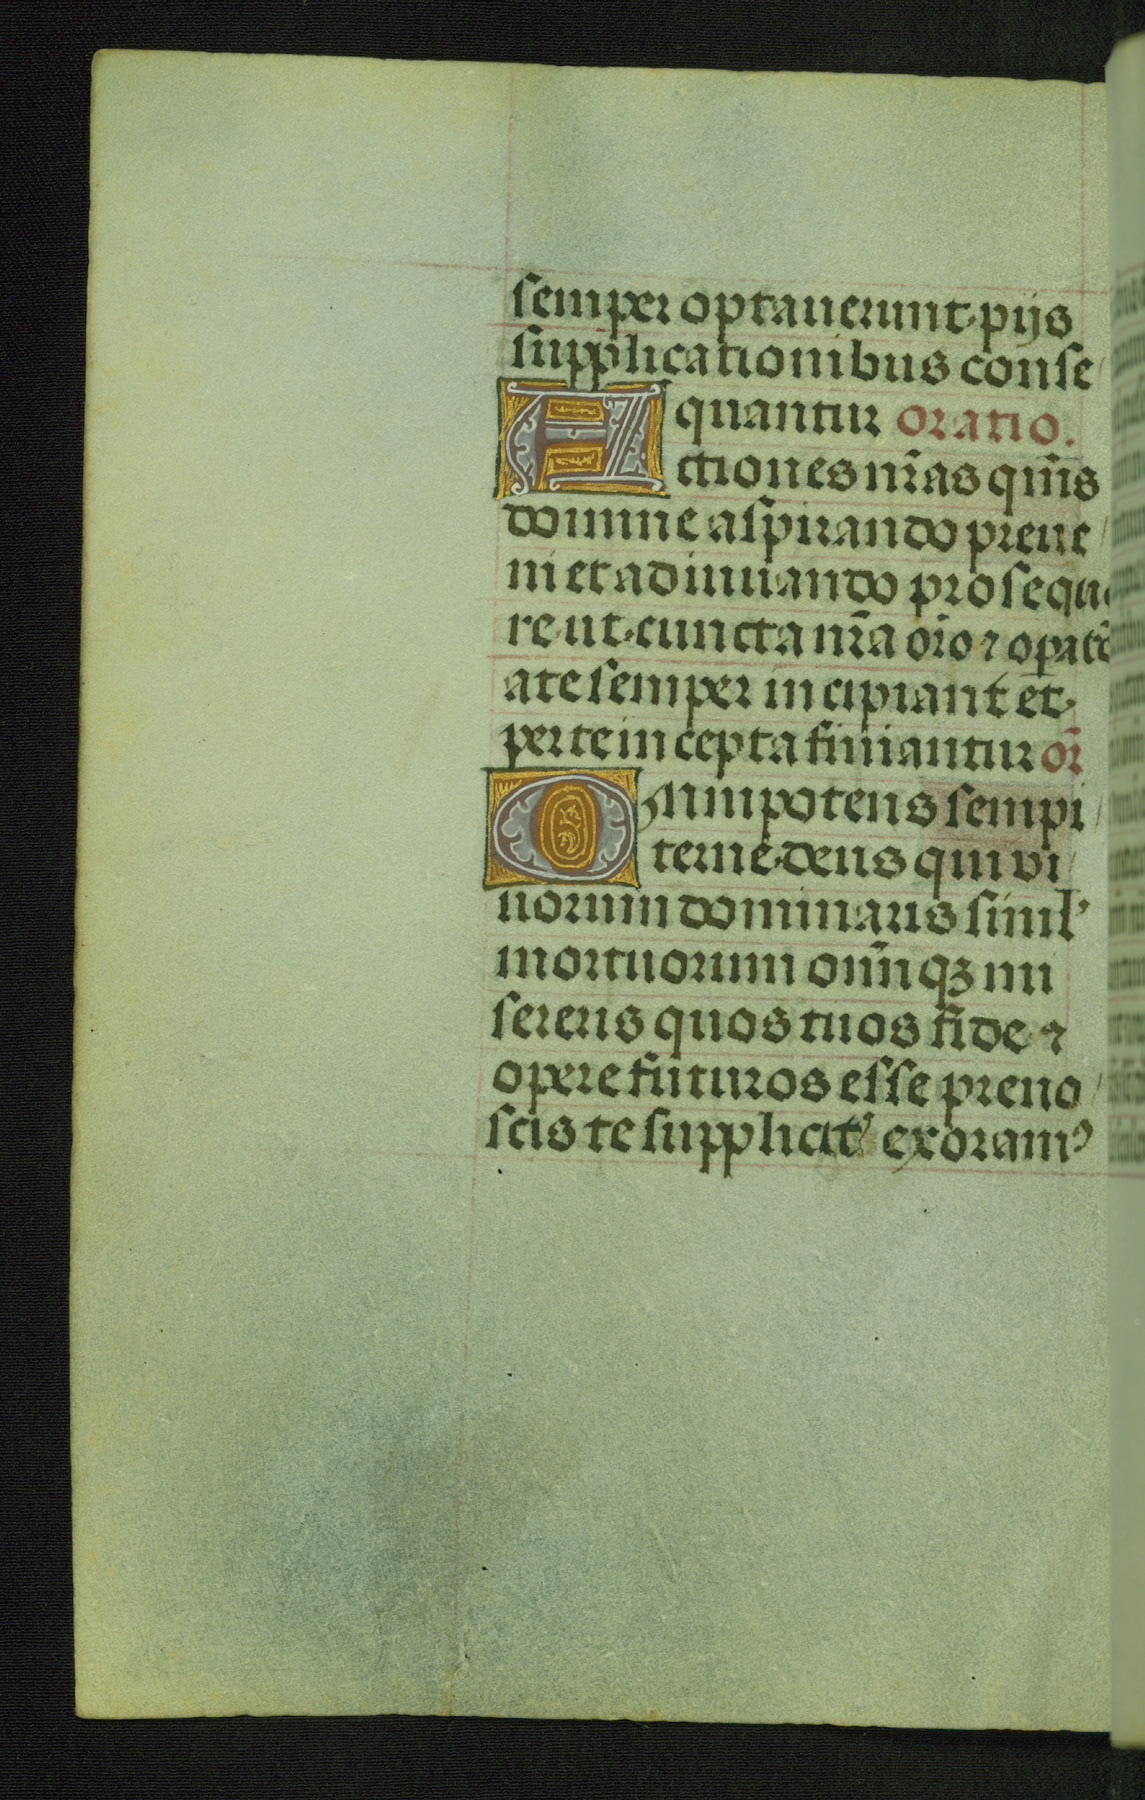 semper optauerunt pijs
supplicationibus conse
quantur oratio.
Actiones nr̄as qm̄s
domine aspirando preue
ni et adiuuando proseque
re ut cuncta nr̄a or̄o ⁊ opatō
a te semper incipiant et
per te incepta finiantur or̄
Omnipotens sempi
terne deus qui vi
uorum dominaris simul'
mortuorum omn̄iqꝫ mi
sereris quos tuos fide ⁊
opere futuros esse preno
scis te supplicit' exoramꝰ